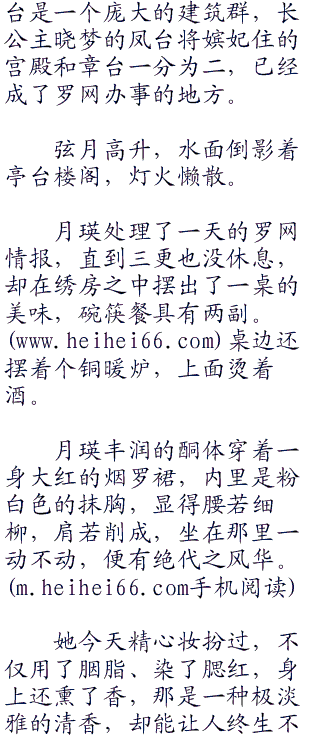 台是一个庞大的建筑群，长
公主晓梦的凤台将嫔妃住的
宫殿和章台一分为二，已经
成了罗网办事的地方。
弦月高升，水面倒影着
亭台楼阁，灯火懒散。
月瑛处理了一天的罗网
情报，直到三更也没休息，
却在绣房之中摆出了一桌的
美味，碗筷餐具有两副。
(www.heihei66.com)桌边还
摆着个铜暖炉，上面烫着
酒。
月瑛丰润的酮体穿着一
身大红的烟罗裙，内里是粉
白色的抹胸，显得腰若细
柳，肩若削成，坐在那里一
动不动，便有绝代之风华。
(m.heihei66.com手机阅读)
她今天精心妆扮过，不
仅用了胭脂、染了腮红，身
上还熏了香，那是一种极淡
雅的清香，却能让人终生不